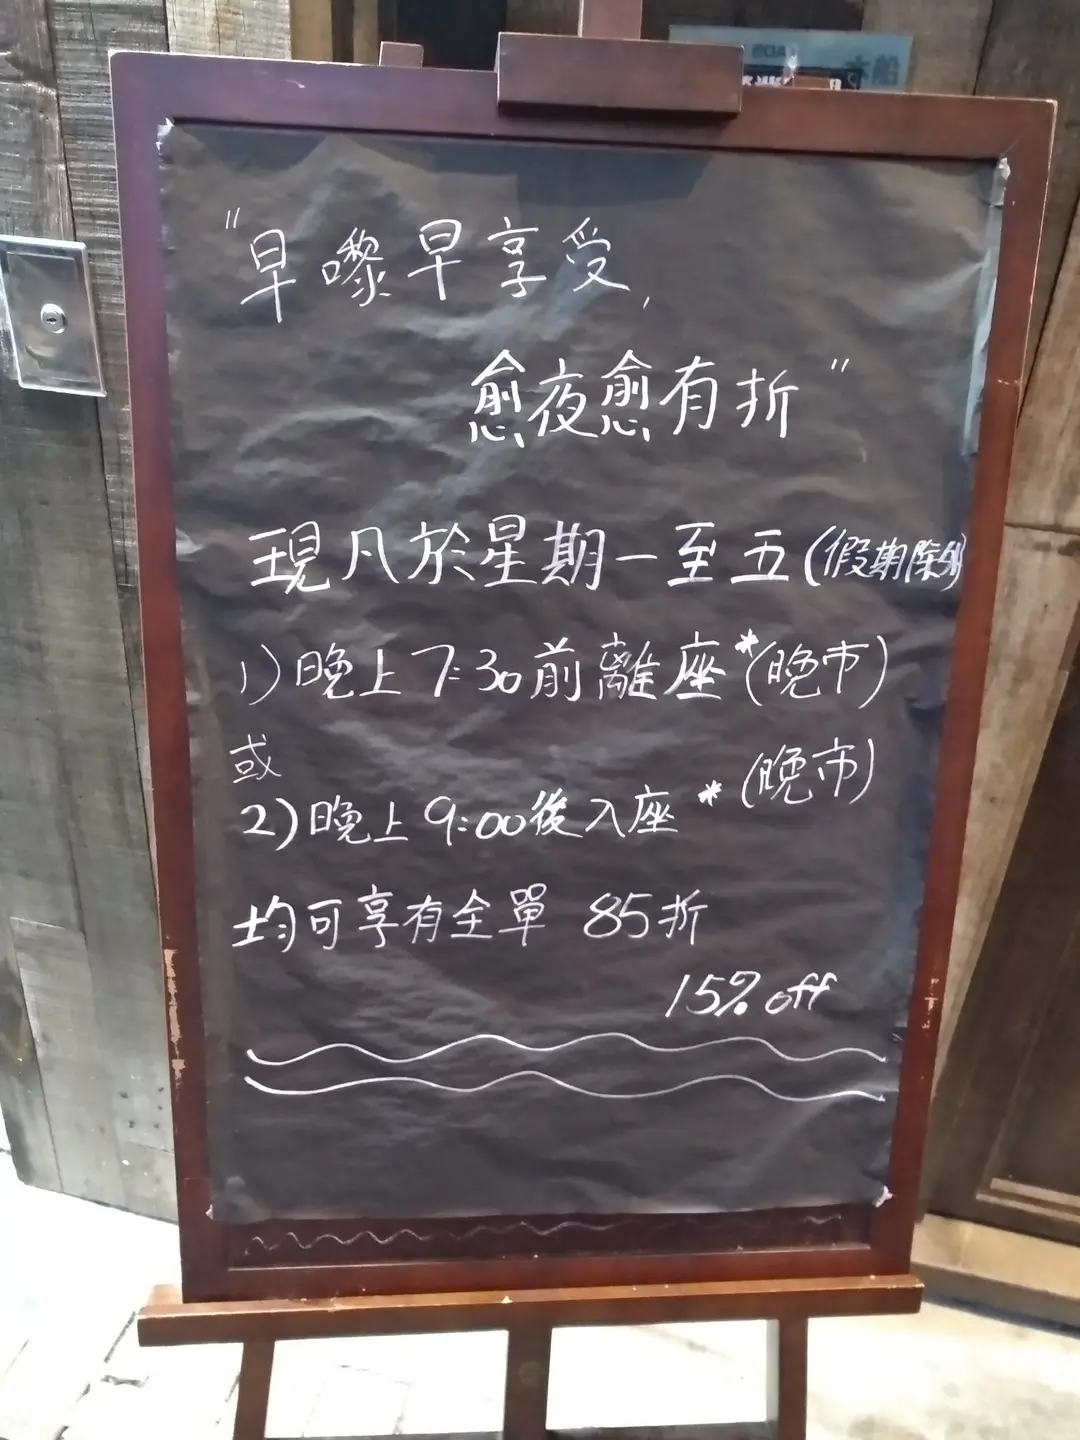 "早嚟早享受,
愈夜愈有折"
現凡於星期一至五(假期除外)
1)晚上7:30前離座*(晚市)
或
2)晚上9:00後入座*(晚市)
均可享有全單 85折
15% off